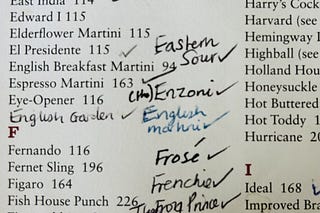 East India 114
Edward I 115
Elderflower Martini 115
El Presidente 115 ✓
English Breakfast Martini 94
Espresso Martini 163 ✓
Eye-Opener 116
English Garden ✓
F
Fernando 116
Fernet Sling 196
Figaro 164
Fish House Punch 226
Eastern
Sour ✓
Enzoni ✓
English
martini ✓
Frosé ✓
Frenchie ✓
The Frog Prince ✓
Harry's Cock
Harvard (see
Hemingway
Highball (see
Holland Hou
Honeysuckle
Hot Buttered
Hot Toddy 1
Hurricane 20
I
Ideal 168
Improved Bra